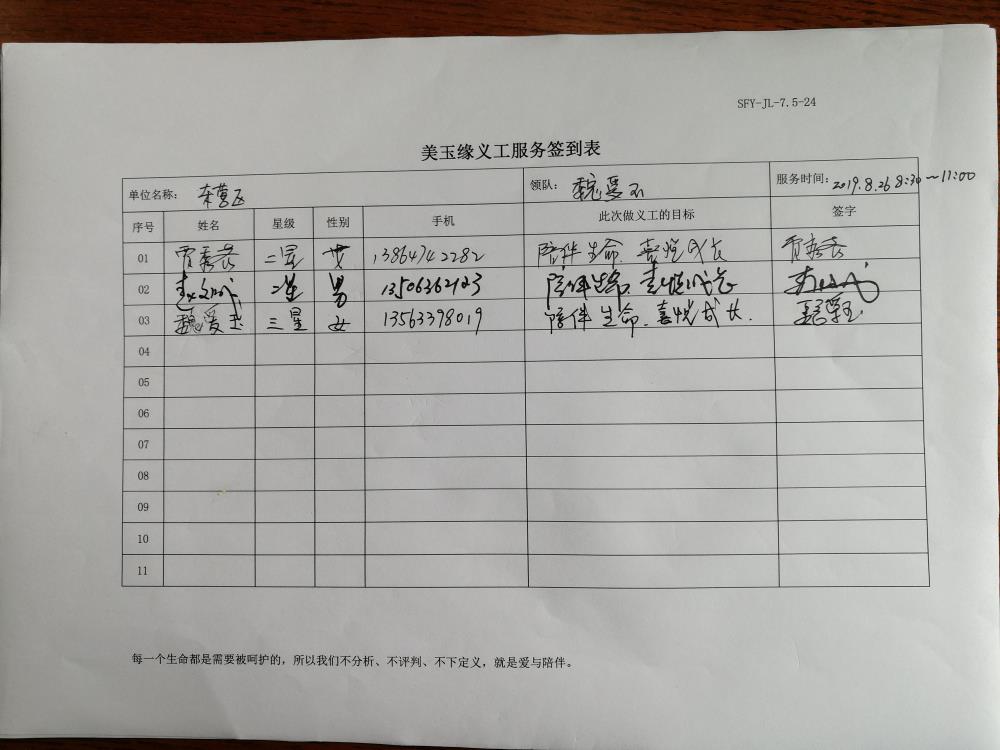 SFY-JL-7.5-24
美玉缘义工服务签到表
单位名称: 东营区 领队: 魏爱玉 服务时间: 2019.8.26 8:30~11:00
序号 姓名 星级 性别 手机 此次做义工的目标 签字
01 贾秀 二星 女 13864742282 陪伴生命 喜悦成长 贾秀
02 二星 男 13506362123 陪伴生命 喜悦成长
03 魏爱玉 三星 女 13563398019 陪伴生命.喜悦成长. 魏爱玉
04
05
06
07
08
09
10
11
每一个生命都是需要被呵护的，所以我们不分析、不评判、不下定义，就是爱与陪伴。